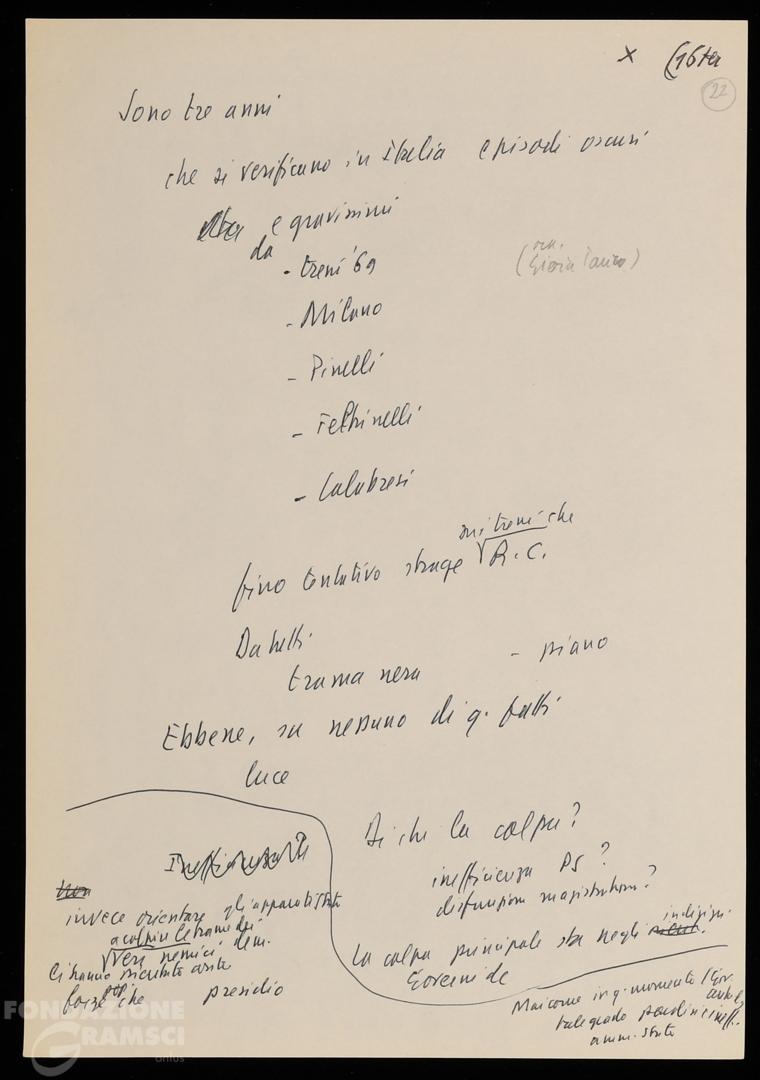 x (16ter
22
Sono tre anni
che si verificano in Italia episodi oscuri
e gravissimi
da
- treni '69
(Gioia Tauro)
- Milano
- Pinelli
- Feltrinelli
- Calabresi
sui treni che
fino tentativo strage √ R.C.
Da tutti
trama nera - piano
Ebbene, su nessuno di q. fatti
luce
Di chi la colpa?
inefficienza PS?
disfunzioni magistratura?
indirizzi
La colpa principale sta negli
Governi dc
Mai come in q. momento
tale grado
amm. stato
invece orientare gli apparati Stato
a colpire le trame dei
√ veri nemici dem.
li hanno
forze che presidio
FONDAZIONE
GRAMSCI
onlus